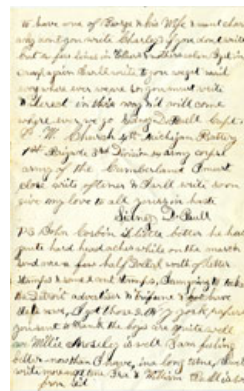 to have one of George & his Wife I must close
any one if you write Charley if you dont write
but a few lines in Ellens & others when I get in
camp again I will write to you we get mail
any where ever we are so you must write
direct in this way & it will come
where ever we go Sidney D Bull Capt
C. W. Church 4th Michigan Battery
1st Brigade 3rd Division army corps
army of the Cumberland I must
close write oftener & I will write soon
give my love to all yours in haste
Sidney D. Bull
PS John Corbin is little better he had
quite hard headaches while on the march
send me a few half Dollars worth of letter
stamps & some cent stamps, I am going to take
the Detroit advertiser & tribune I not have
I got those N. Y. papers
you sent & thank the boys are quite well
Willie Moseley is well I am feeling
better now than I have, in a long time,
write
from Sid